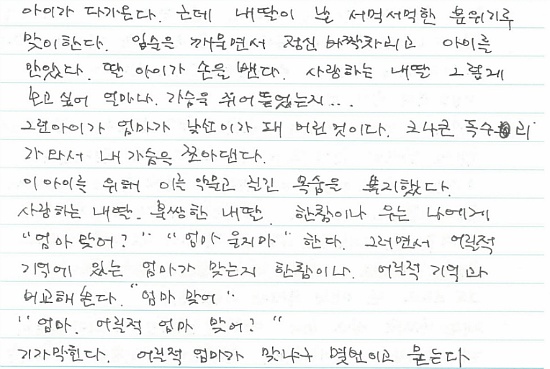 아이가 다가온다. 근데 내딸이 날 서먹서먹한 분위기로
맞이한다. 입술을 깨물면서 정신 바짝차리고 아이를
안았다. 딸 아이가 손을 뺀다. 사랑하는 내딸 그렇게
보고 싶어 얼마나 가슴을 쥐어 뜯었는지...
그런아이가 엄마가 낯선이가 돼 버린것이다. 크나큰 독수리
가 와서 내 가슴을 쪼아댄다.
이 아이를 위해 이를 악물고 질긴 목숨을 부지했다.
사랑하는 내딸. 불쌍한 내딸. 한참이나 우는 나에게
"엄마 맞어?" "엄마 울지마" 한다. 그러면서 어릴적
기억에 있는 엄마가 맞는지 한참이나 어릴적 기억과
비교해 본다. "엄마 맞어"
"엄마. 어릴적 엄마 맞어?"
기가막힌다. 어릴적 엄마가 맞냐구 몇번이고 묻는다